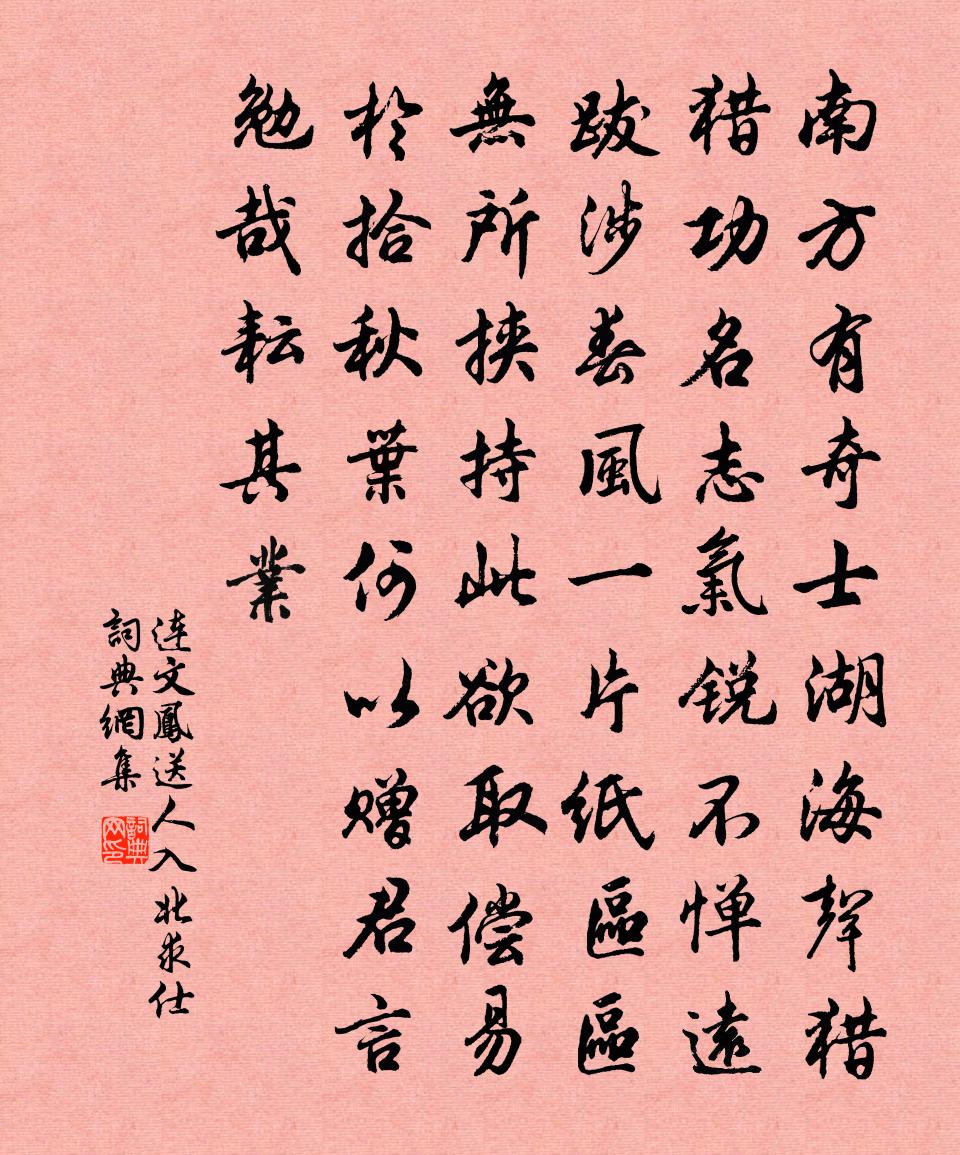 南方有奇士湖海聲猎
猎功名志氣锐不惮遠
跋涉春風一片紙區區
無所挾持此欲取偿易
於拾秋葉何以赠君言
勉哉耘其業
连文鳳送人入北求仕
詞典網集
詞典网印